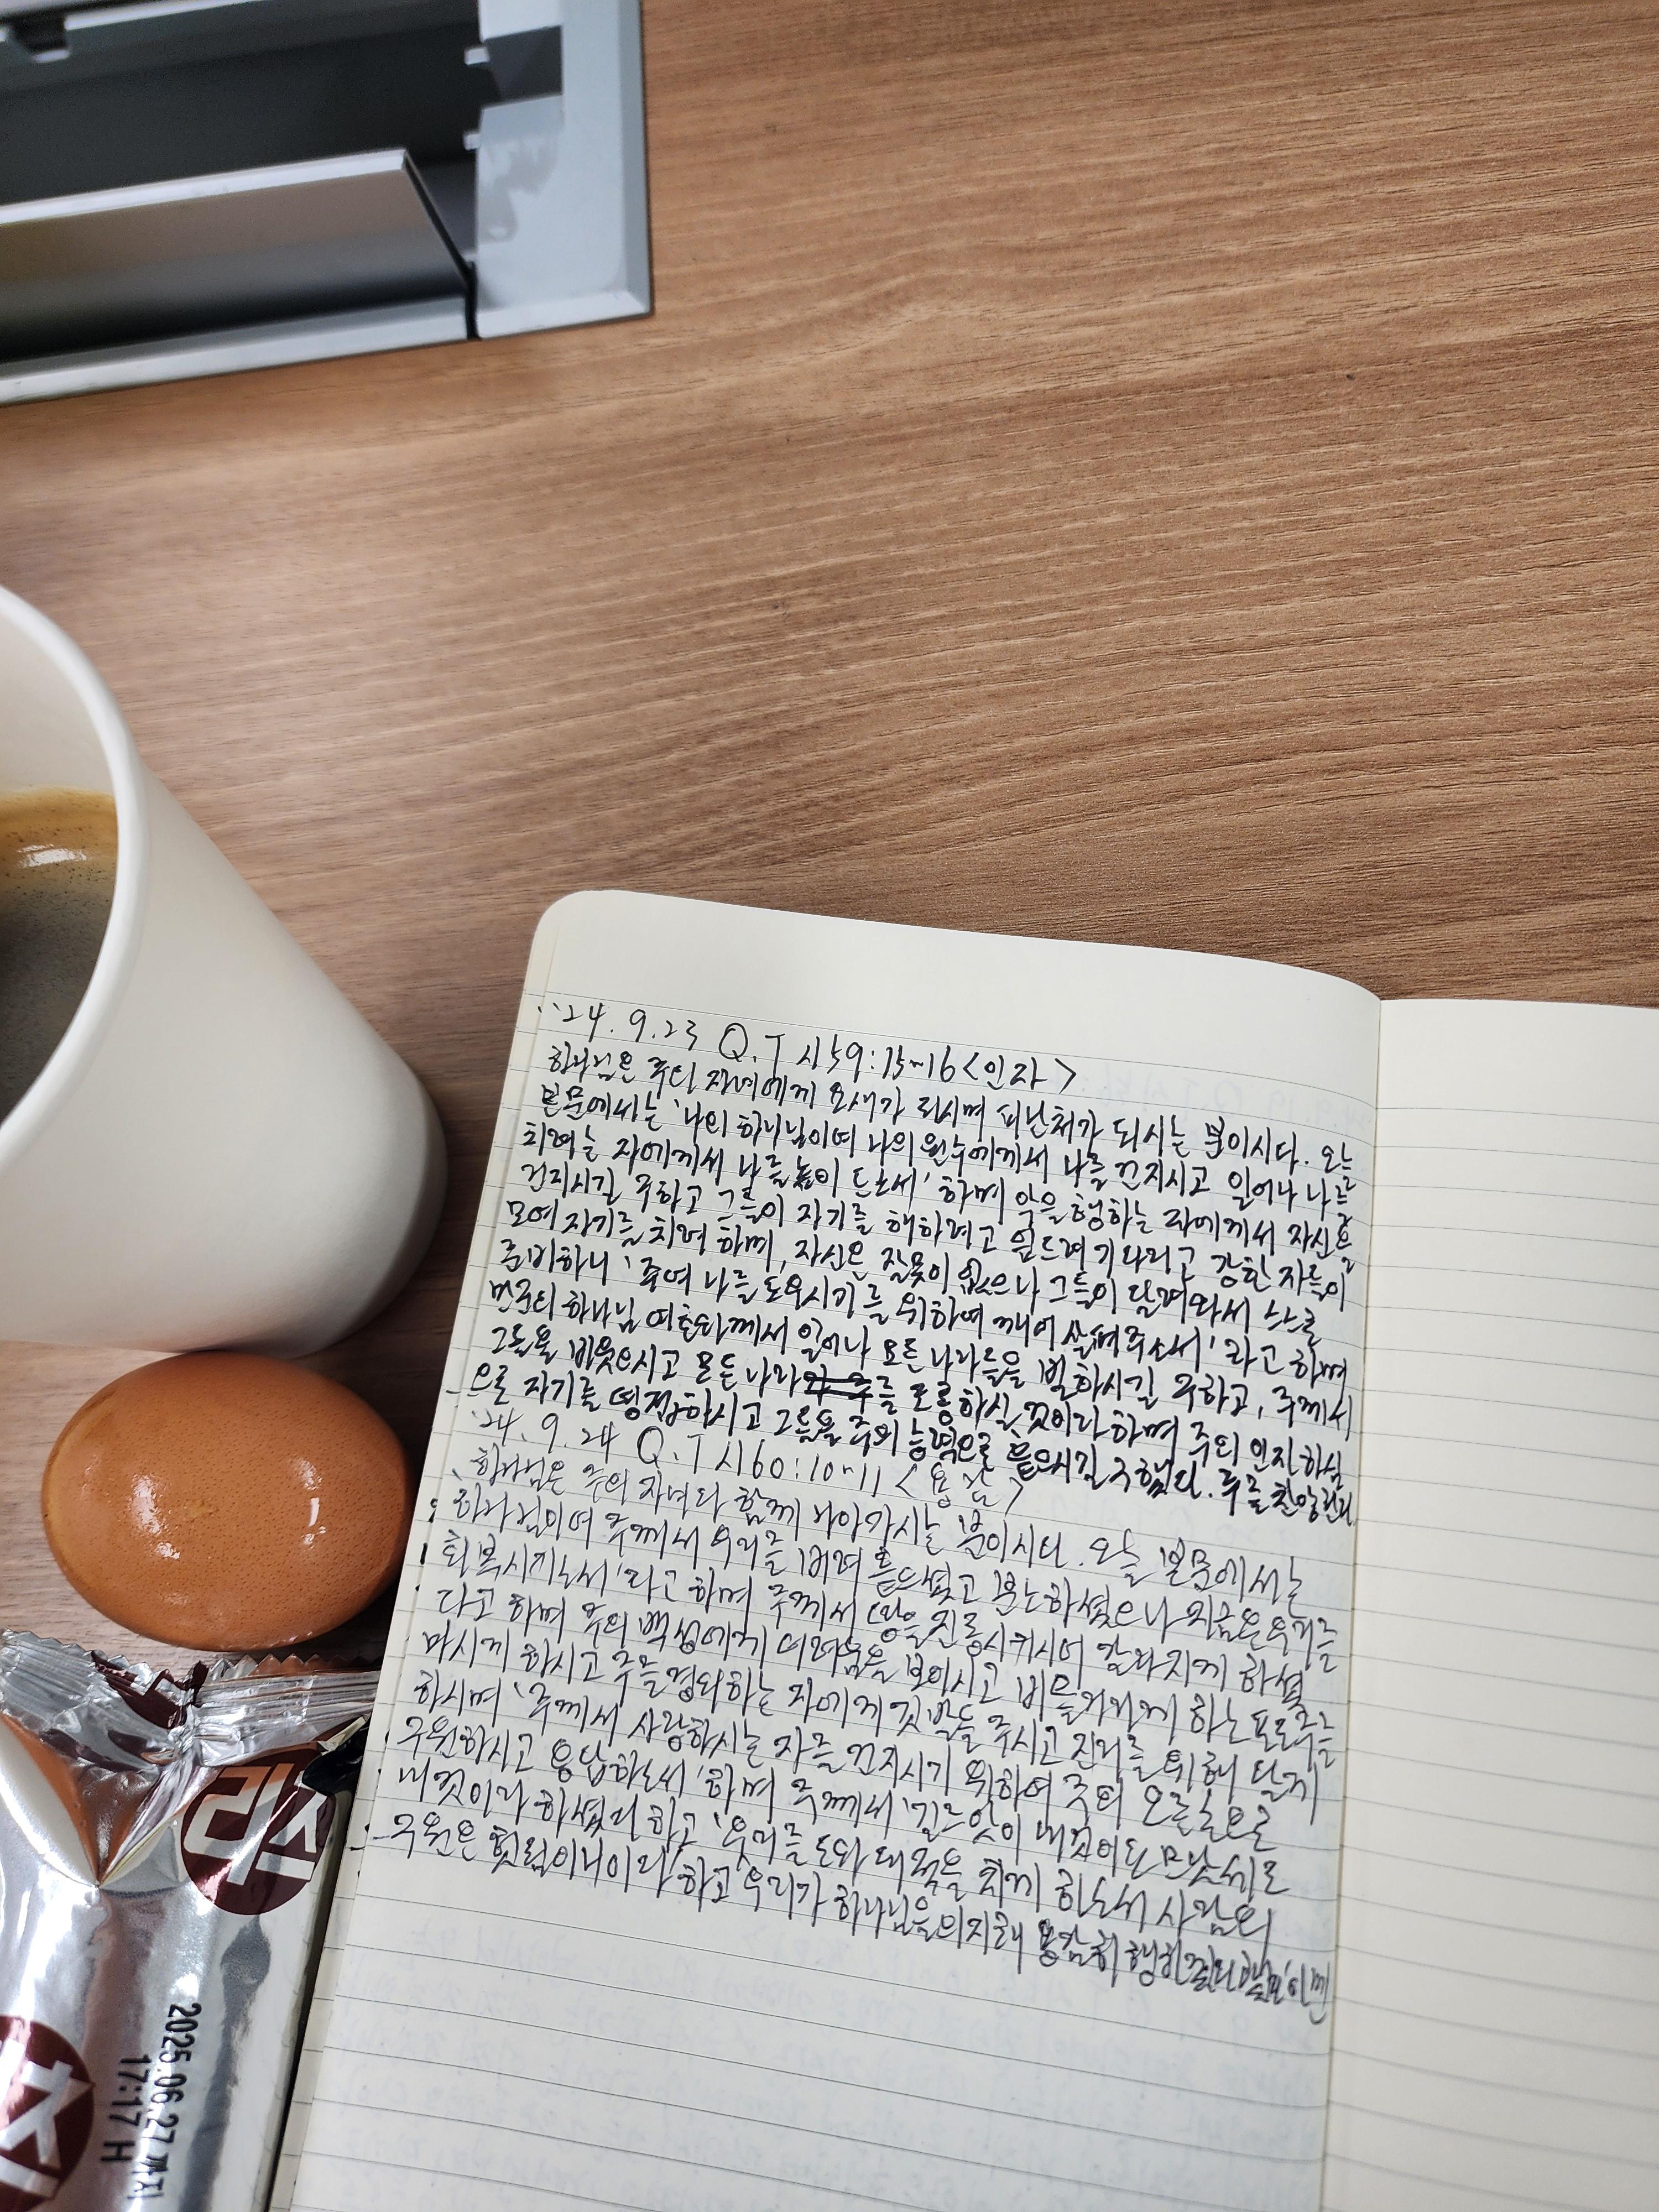 '24. 9. 23 Q.T 시59:1~16 <인자>
하나님은 주의 자녀에게 요새가 되시며 피난처가 되시는 분이시다. 오늘
본문에서는 '나의 하나님이여 나의 원수에게서 나를 건지시고 일어나 나를
치려는 자에게서 나를 높이 드소서' 하며 악을 행하는 자에게서 자신을
건지시길 구하고 그들이 자기를 해하려고 엎드려 기다리고 강한 자들이
모여 자기를 치려 하며, 자신은 잘못이 없으나 그들이 달려와서 스스로
준비하니 '주여 나를 도우시기를 위하여 깨어 살펴주소서' 라고 하며
만군의 하나님 여호와께서 일어나 모든 나라들을 벌하시길 구하고, 주께서
그들을 비웃으시고 모든 나라를 조롱하실 것이라 하며 주의 인자하심
으로 자기를 영접하시고 그들을 주의 능력으로 흩으시길 구합니다. 주를 찬양
'24. 9. 24 Q.T 시60:10~11 <용감>
하나님은 주의 자녀와 함께 나아가시는 분이시다. 오늘 본문에서는
'하나님이여 주께서 우리를 버려 흩으셨고 분노하셨으나 지금은 우리를
회복시키소서' 라고 하며 주께서 땅을 진동시키시어 갈라지게 하셨
다고 하며 주의 백성에게 어려움을 보이시고 비틀거리게 하는 포도주를
마시게 하시고 주를 경외하는 자에게 깃발을 주시고 진리를 위해 달게
하시며 '주께서 사랑하시는 자를 건지시기 위하여 주의 오른손으로
구원하시고 응답하소서' 하며 주께서 '길르앗이 내것이요 므낫세도
내것이라 하셨다 하고 '우리를 도와 대적을 치게 하소서 사람의
구원은 헛됨이니이다' 하고 우리가 하나님을 의지해 용감히 행하
2025.06.27 까지
17:17 H